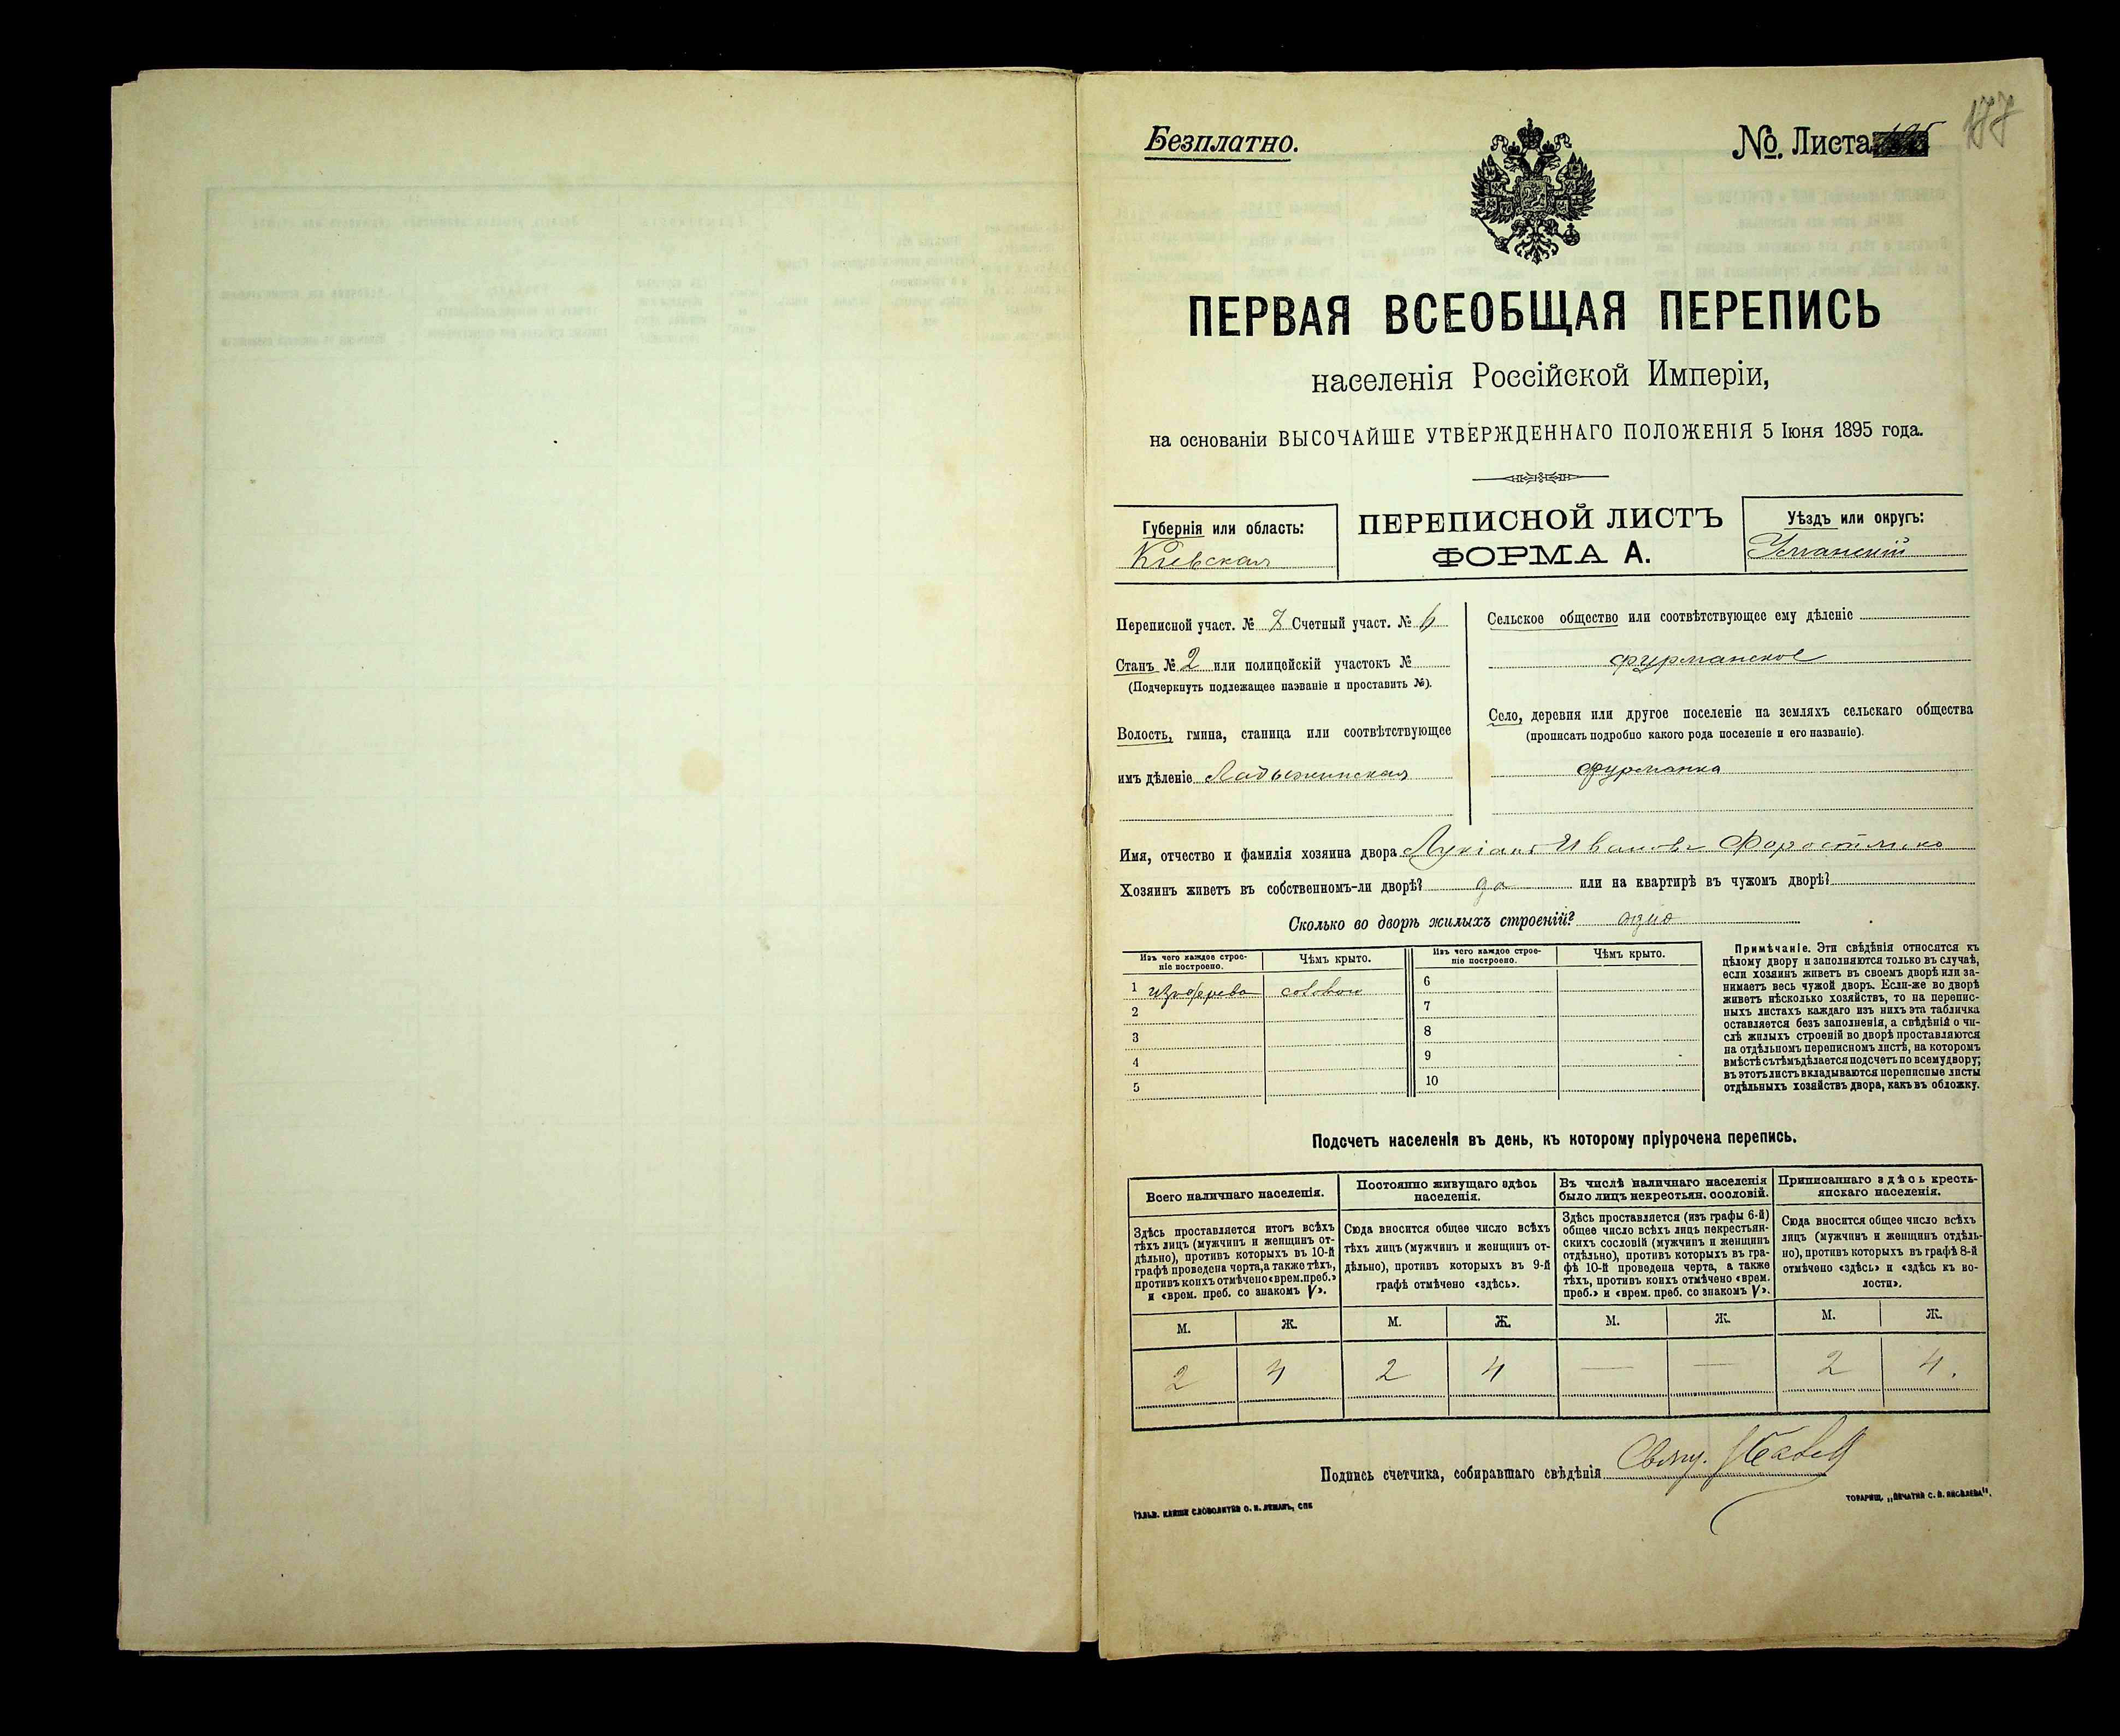 177
Безплатно.
№. Листа
ПЕРВАЯ ВСЕОБЩАЯ ПЕРЕПИСЬ
населенія Россійской Имперіи,
на основаніи ВЫСОЧАЙШЕ УТВЕРЖДЕННАГО ПОЛОЖЕНІЯ 5 Іюня 1895 года.
Губернія или область:
Кіевская
ПЕРЕПИСНОЙ ЛИСТЪ
ФОРМА А.
Уѣздъ или округъ:
Уманскій
Переписной участ. № 7 Счетный участ. № 6
Станъ № 2 или полицейскій участокъ №
(Подчеркнуть подлежащее названіе и проставить №).
Волость, гмина, станица или соотвѣтствующее
имъ дѣленіе Ладыжинская
Сельское общество или соотвѣтствующее ему дѣленіе
фурманское
Село, деревня или другое поселеніе на земляхъ сельскаго общества
(прописать подробно какого рода поселеніе и его названіе).
фурманка
Имя, отчество и фамилія хозяина двора Лукіанъ Ивановъ
Хозяинъ живетъ въ собственномъ-ли дворѣ? да или на квартирѣ въ чужомъ дворѣ?
Сколько во дворѣ жилыхъ строеній? одно
Изъ чего каждое строе-
ніе построено.
Чѣмъ крыто.
Изъ чего каждое строе-
ніе построено.
Чѣмъ крыто.
1 изъ дерева
2
3
4
5
6
7
8
9
10
Примѣчаніе. Эти свѣдѣнія относятся къ
цѣлому двору и заполняются только въ случаѣ,
если хозяинъ живетъ въ своемъ дворѣ или за-
нимаетъ весь чужой дворъ. Если-же во дворѣ
живетъ нѣсколько хозяйствъ, то на перепис-
ныхъ листахъ каждаго изъ нихъ эта табличка
оставляется безъ заполненія, а свѣдѣній о чи-
слѣ жилыхъ строеній во дворѣ проставляются
на отдѣльномъ переписномъ листѣ, на которомъ
вмѣстѣ съ тѣмъ дѣлается подсчетъ по всему двору;
въ этотъ листъ вкладываются переписные листы
отдѣльныхъ хозяйствъ двора, какъ въ обложку.
Подсчетъ населенія въ день, къ которому пріурочена перепись.
Всего наличнаго населенія.
Здѣсь проставляется итогъ всѣхъ
тѣхъ лицъ (мужчинъ и женщинъ от-
дѣльно), противъ которыхъ въ 10-й
графѣ проведена черта, а также тѣхъ,
противъ коихъ отмѣчено «врем. преб.»
и «врем. преб. со знакомъ V».
Постоянно живущаго здѣсь
населенія.
Сюда вносится общее число всѣхъ
тѣхъ лицъ (мужчинъ и женщинъ от-
дѣльно), противъ которыхъ въ 9-й
графѣ отмѣчено «здѣсь».
Въ числѣ наличнаго населенія
было лицъ некрестьян. сословій.
Здѣсь проставляется (изъ графы 6-й)
общее число всѣхъ лицъ некрестьян-
скихъ сословій (мужчинъ и женщинъ
отдѣльно), противъ которыхъ въ гра-
фѣ 10-й проведена черта, а также
тѣхъ, противъ коихъ отмѣчено «врем.
преб.» и «врем. преб. со знакомъ V».
Приписаннаго здѣсь кресть-
янскаго населенія.
Сюда вносится общее число всѣхъ
лицъ (мужчинъ и женщинъ отдѣль-
но), противъ которыхъ въ графѣ 8-й
отмѣчено «здѣсь» и «здѣсь къ во-
лости».
М. Ж. М. Ж. М. Ж. М. Ж.
2 4 2 4 — — 2 4.
Подпись счетчика, собиравшаго свѣдѣнія
ГАЛЬВ. КЛИШЕ СЛОВОЛИТНИ О. И. ЛЕМАНЪ, СПБ
ТОВАРИЩ. „ПЕЧАТНЯ С. П. ЯКОВЛЕВА".